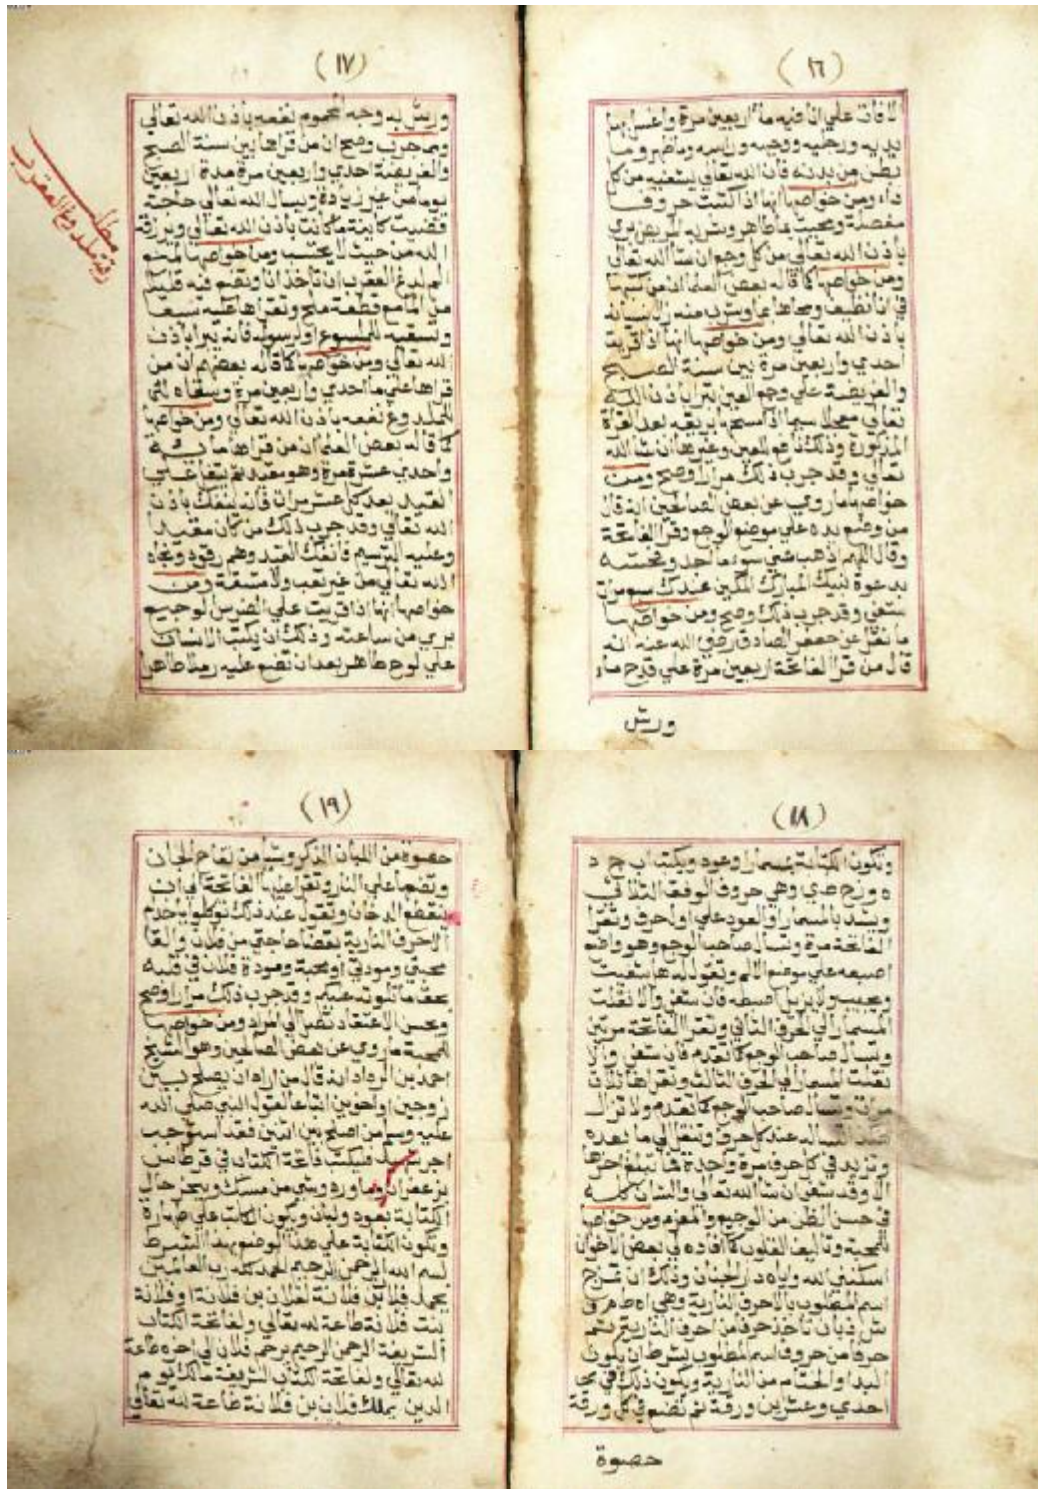 (١٦)
الافات علي انا فيه ماء اربعين مرة واغسل بها
يديه ورجليه ووجهه وراسه وما ظهر وما
بطن من بدنه فان الله تعالي يشفيه من كل
داء ومن خواصها انها اذا كتبت حروفا
مفصلة ومحيت بماء طاهر وشربه المريض بري
باذن الله تعالي من كل وجع ان شا الله تعالي
ومن خواصها كما قاله بعض العلما ان من كتبها
في انا نظيف ومحاها بما وشرب منه زال نسيانه
باذن الله تعالي ومن خواصها انها اذا قريت
احدي واربعين مرة بين سنة الصبح
والفريضة علي وجع العين تبرا باذن الله
تعالي معجلا سيما اذا مسح بريقه بعد القراة
المذكورة وذلك نافع للعين وغيرها ان شا الله
تعالي وقد جرب ذلك مرارا وصح ومن
خواصها ما روي عن بعض الصالحين انه قال
من وضع يده علي موضع الوجع وقرا الفاتحة
وقال اللهم اذهب عني سوء ما اجد وفحشه
بدعوة نبيك المبارك المكين عندك سبع مرات
شفي وقد جرب ذلك وصح ومن خواصها
ما نقل عن جعفر الصادق رضي الله عنه انه
قال من قرا الفاتحة اربعين مرة علي قدح ماء
ورش
(١٧)
ورش به وجه المحموم نفعه باذن الله تعالي
ومما جرب وصح ان من قراها بين سنة الصبح
والفريضة احدي واربعين مرة مدة اربعين
يوما من غير زيادة ويسال الله تعالي حاجته
قضيت كاينة ما كانت باذن الله تعالي ويرزقه
الله من حيث لا يحتسب ومن خواصها لمنع
الم لدغ العقرب ان تاخذ انا وتضع فيه قليلا
من الما مع قطعة ملح وتقراها عليه سبعا
وتسقيه للملسوع او لرسوله فانه يبرا باذن
الله تعالي ومن خواصها كما قاله بعضهم ان من
قراها علي ما احدي واربعين مرة وسقاه
للملدوغ نفعه باذن الله تعالي ومن خواصها
كما قاله بعض العلما ان من قراها ماية
واحدي عشرة مرة وهو مقيد ثم يتفل علي
القيد بعد كل عشر مرات فانه ينفك باذن
الله تعالي وقد جرب ذلك من كان مقيدا
وعليه الترسيم فانفك القيد وهم رقود ونجاه
الله تعالي من غير تعب ولا مشقة ومن
خواصها انها اذا قريت علي الضرس الوجيع
بري من ساعته وذلك ان يكتب الانسان
علي لوح طاهر بعد ان تضع عليه رملا طاهرا
مطلب
رقية ملدوغ العقرب
(١٨)
وتكون الكتابة بمسمار او عود ويكتب ا ب ج د
ه و ز ح ط ي وهي حروف الوفق الثلاثي
ويشد بالمسمار او العود علي اول حرف وتقرا
الفاتحة مرة وتسال صاحب الوجع وهو واضع
اصبعه علي موضع الالم وتقول له هل شفيت
ويجيب ولا يزيل اصبعه فان شفي والا نقلت
المسمار الي الحرف الثاني وتقرا الفاتحة مرتين
وتسال صاحب الوجع كما تقدم فان شفي والا
نقلت المسمار الي الحرف الثالث وتقراها ثلاث
مرات وتسال صاحب الوجع كما تقدم ولا تزال
تساله عند كل حرف وتنقل الي ما بعده
وتزيد في كل حرف مرة واحدة فما تبلغ اخرها
الا وقد شفي ان شا الله تعالي والشان كله
في حسن الظن من الوجيع والمعزم ومن خواصها
للمحبة وتاليف القلوب كما افاده لي بعض الاخوان
اسكنني الله واياه دار الجنان وذلك ان تمزج
اسم المطلوب بالاحرف النارية وهي ا ه ط م ف
ش ذ بان تاخذ حرفا من احرف النارية ثم
حرفا من حروف اسم المطلوب بشرط ان يكون
البدا والختام من النارية ويكون ذلك في
احدي وعشرين ورقة ثم تضع في كل ورقة
حصوة
(١٩)
حصوة من اللبان الذكر وشيا من تفاح الجان
وتضعها علي النار وتقرا عليها الفاتحة الي ان
ينقطع الدخان وتقول عند ذلك توكلوا يا خدم
الاحرف النارية بقضا حاجتي من فلان والقا
محبتي ومودتي او محبة ومودة فلان في قلبه
بحق ما تلوته عليكم وقد جرب ذلك مرارا وصح
وبحسن الاعتقاد تصل الي المراد ومن خواصها
للمحبة ما روي عن بعض الصالحين وهو الشيخ
احمد بن الرداد انه قال من اراد ان يصلح بين
زوجين او اخوين اتباعا لقول النبي صلي الله
عليه وسلم من اصلح بين اثنين فقد استوجب
اجر شهيد فيكتب فاتحة الكتاب في قرطاس
بزعفران وماورد وشي من مسك ويبخر حال
الكتابة بعود ولبان ويكون الكاتب علي طهارة
وتكون الكتابة علي هذا الوضع بهذا الشرط
بسم الله الرحمن الرحيم الحمد لله رب العالمين
يحمد فلان بن فلانة لفلان بن فلانة او فلانة
بنت فلانة طاعة لله تعالي ولفاتحة الكتاب
الشريفة الرحمن الرحيم يرحم فلان الي اخره طاعة
لله تعالي ولفاتحة الكتاب الشريفة مالك يوم
الدين يملك فلان بن فلانة طاعة لله تعالي